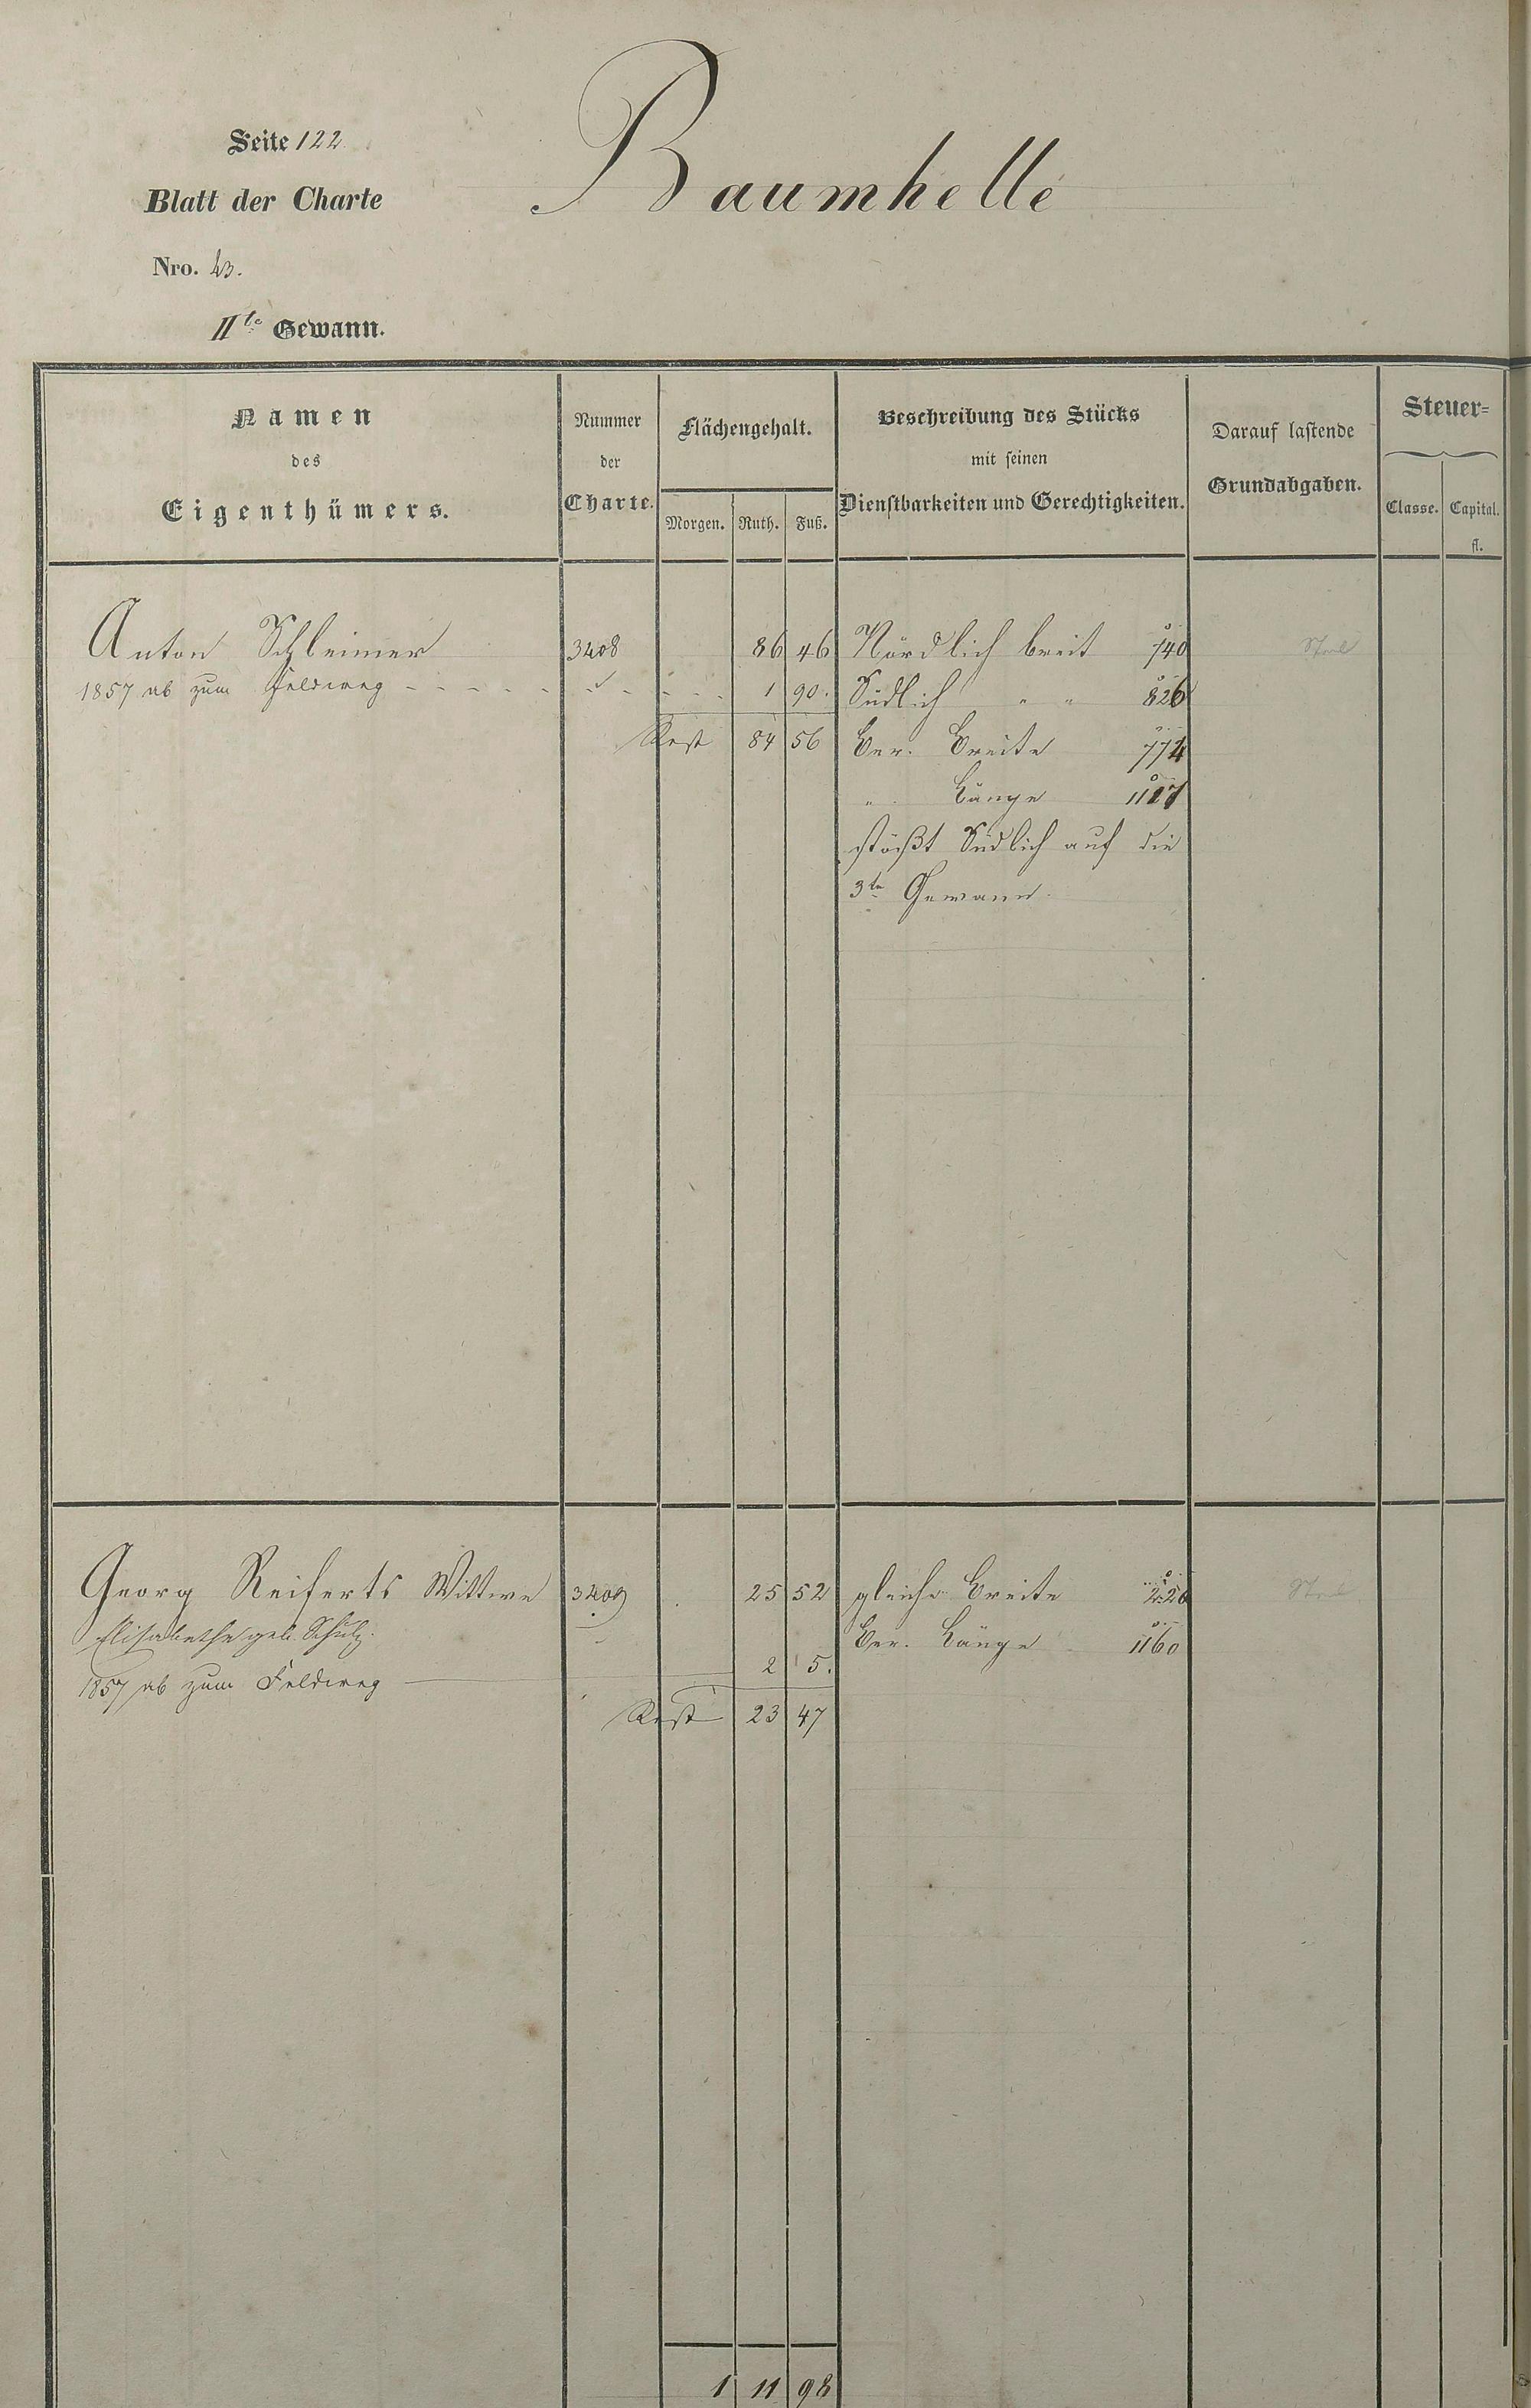 Seite 122
Baumhelle
Blatt der Charte
Nro. 43.
IIte Gewann.
Namen des Eigenthümers.
Nummer der Charte.
Flächengehalt.
Morgen. Ruth. Fuß.
Beschreibung des Stücks mit seinen Dienstbarkeiten und Gerechtigkeiten.
Darauf lastende Grundabgaben.
Steuer=
Classe. Capital.
fl.
Anton Schleimer 3408 86 46 Nördlich breit 740
1857 ab zum Feldweg 1 90. Südlich " " 826
Rest 84 56 Ber. Breite 774
" Länge 1117
stößt Südlich auf die
3te Gewann.
Georg Reiferts Wittwe 3409 25 52 gleiche Breite 220
Elisabethe geb. Schulz. Ber. Länge 1160
1857 ab zum Feldweg 2 5.
Rest 23 47
1 11 98